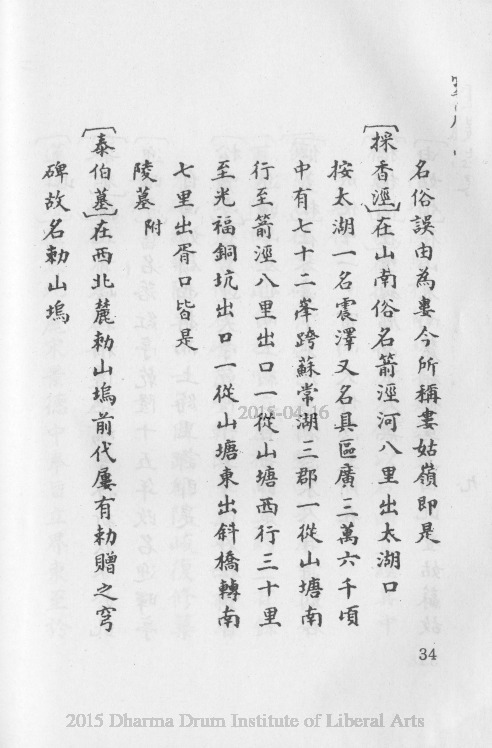 名俗誤由為婁今所稱婁姑嶺即是
【採香涇】在山南俗名箭涇河八里出太湖口
按太湖一名震澤又名具區廣三萬六千頃
中有七十二峯跨蘇常湖三郡一從山塘南
行至箭涇八里出口一從山塘西行三十里
至光福銅坑出口一從山塘東出斜橋轉南
七里出胥口皆是
陵墓附
【泰伯墓】在西北麓勑山塢前代屢有勑贈之穹
碑故名勑山塢
34
2015-04-16
2015 Dharma Drum Institute of Liberal Arts